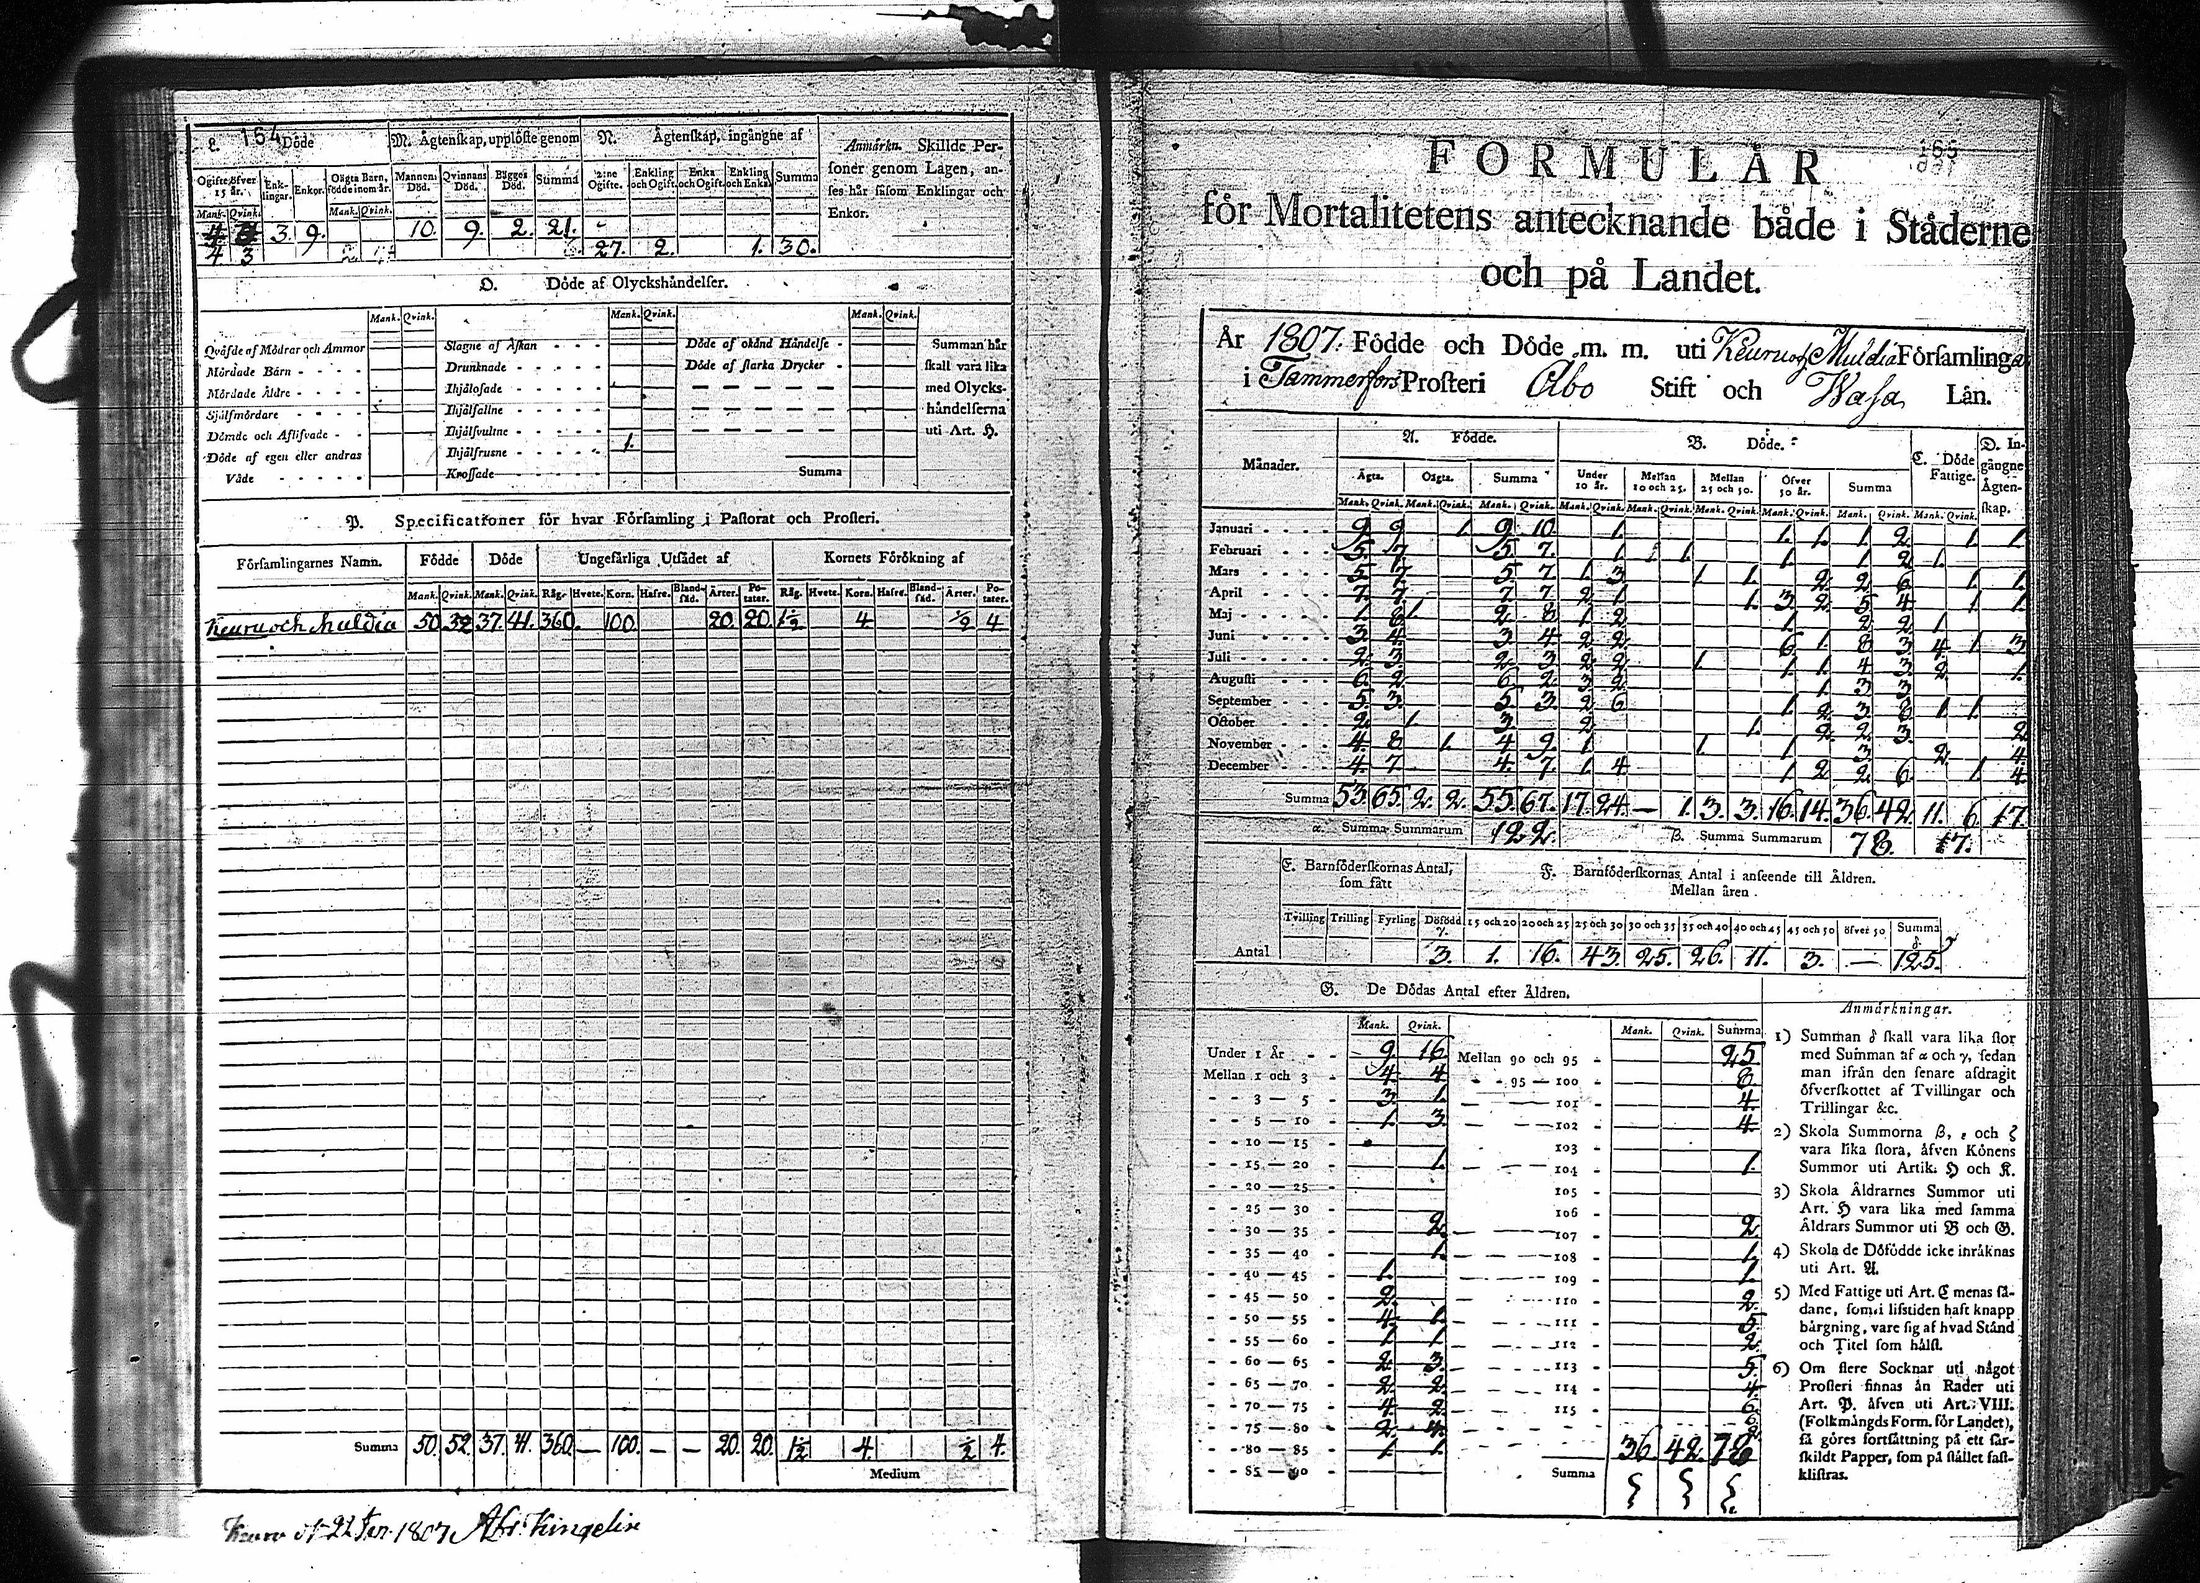 L. 154 Döde M. Ägtenskap, upplöste genom N. Ägtenskap, ingångne af
Anmärkn. Skillde Personer genom Lagen, anses här såsom Enklingar och Enkor.
Ogifte öfver 15 år. Enklingar. Enkor. Oägta Barn, födde inom år. Mannens Död. Qvinnans Död. Bägges Död. Summa 2:ne Ogifte. Enkling och Ogift. Enka och Ogift. Enkling och Enka. Summa
Mank. Qvink. Mank. Qvink.
3. 9. 10. 9. 2. 21.
4 3 27. 2. 1. 30.
O. Döde af Olyckshändelser.
Mank. Qvink. Mank. Qvink. Mank. Qvink.
Qväfde af Mödrar och Ammor Slagne af Åskan Döde af okänd Händelse Summan här
Mördade Barn Drunknade Döde af starka Drycker skall vara lika
Mördade Äldre Ihjälosade med Olycks-
Självmördare Ihjälfallne händelserna
Dömde och Aflifvade Ihjälsvultne uti Art. H.
Döde af egen eller andras Ihjälfrusne 1.
Våde Krossade Summa
P. Specificationer för hvar Församling i Pastorat och Prosteri.
Församlingarnes Namn. Födde Döde Ungefärliga Utsädet af Kornets Förökning af
Mank. Qvink. Mank. Qvink. Råg. Hvete. Korn. Hafre. Blandsäd. Ärter. Potater. Råg. Hvete. Korn. Hafre. Blandsäd. Ärter. Potater.
Keuru och Muldia 50 52 37. 41. 360. 100. 20. 20. 1½ 4 ½ 4
Summa 50. 52. 37. 41. 360. — 100. — — 20. 20. 1½ 4. ½ 4.
Medium
Keuru 1807
165
FORMULÄR
för Mortalitetens antecknande både i Städerne
och på Landet.
År 1807. Födde och Döde m. m. uti Keuru och Muldia Församlingar
i Tammerfors Prosteri Åbo Stift och Wasa Län.
Månader. A. Födde. B. Döde. C. Döde Fattige. D. Ingångne Ägtenskap.
Ägta. Oägta. Summa Under 10 år. Mellan 10 och 25. Mellan 25 och 50. Öfver 50 år. Summa
Mank. Qvink. Mank. Qvink. Mank. Qvink. Mank. Qvink. Mank. Qvink. Mank. Qvink. Mank. Qvink. Mank. Qvink. Mank. Qvink.
Januari 9 9 1. 9. 10. 1. 1. 1. 1. 2. 1. 1.
Februari 5. 7. 5 7. 1. 1. 1. 1 2. 1.
Mars 5 7 5. 7. 1. 3. 1. 1. 2. 2. 6. 1. 1.
April 7. 7. 7 7. 2. 1. 1. 3. 2. 5 4. 1. 1.
Maj 1. 6. 1. 2 8 1. 2. 1. 2 2 1.
Juni 3 4 3 4. 2 2 6. 1. 8 3. 4. 1. 3.
Juli 2. 3. 2. 3 2. 2. 1. 1. 1. 4 3. 2. 1.
Augusti 6. 2. 6. 2. 3. 2. 1. 3. 3.
September 5 3. 5. 3. 2. 6 1. 2. 3. 8 1. 1.
October 2. 1. 3. 2. 1. 2. 2. 3. 2.
November 4. 8 1. 4 9. 1. 1. 1. 3. 2. 4.
December 4. 7 4. 7. 1. 4. 1. 2 2. 6. 1. 4.
Summa 53. 65. 2. 2. 55. 67. 17. 24. — 1. 3. 3. 16. 14. 36. 42. 11. 6. 17.
α. Summa Summarum 122. β. Summa Summarum 78. 17.
E. Barnföderskornas Antal, som fått F. Barnföderskornas Antal i anseende till Åldren. Mellan åren.
Tvilling Trilling Fyrling Dödfödd γ. 15 och 20 20 och 25 25 och 30 30 och 35 35 och 40 40 och 45 45 och 50 öfver 50 Summa δ.
Antal 3. 1. 16. 43. 25. 26. 11. 3. — 125.
G. De Dödas Antal efter Åldren.
Mank. Qvink. Mank. Qvink. Summa
Under 1 År 9. 16 Mellan 90 och 95 25
Mellan 1 och 3 4. 4 95 — 100 8.
3 — 5 3. 1. 101 4.
5 — 10 1. 3. 102 4.
10 — 15 103
15 — 20 1. 104 1.
20 — 25 105
25 — 30 106
30 — 35 2. 107 2.
35 — 40 1. 108 1.
40 — 45 1. 109 1.
45 — 50 2. 110 2.
50 — 55 4. 1. 111 5.
55 — 60 1. 1. 112 2.
60 — 65 2. 3. 113 5.
65 — 70 2. 2. 114 4.
70 — 75 4. 2. 115 6.
75 — 80 2. 4. 6.
80 — 85 1. 1. 36. 42. 78
85 — 90 Summa
Anmärkningar.
1) Summan δ skall vara lika stor
med Summan af α och γ, sedan
man ifrån den senare afdragit
öfverskottet af Tvillingar och
Trillingar &c.
2) Skola Summorna β, ε och ζ
vara lika stora, äfven Könens
Summor uti Artik. H och K.
3) Skola Åldrarnes Summor uti
Art. H vara lika med samma
Åldrars Summor uti B och G.
4) Skola de Döfödde icke inräknas
uti Art. A.
5) Med Fattige uti Art. C menas så-
dane, som i lifstiden haft knapp
bärgning, vare sig af hvad Stånd
och Titel som hälst.
6) Om flere Socknar uti något
Prosteri finnas än Rader uti
Art. P. äfven uti Art. VIII.
(Folkmängds Form. för Landet),
så göres fortsättning på ett sär-
skildt Papper, som på stället fast-
klistras.